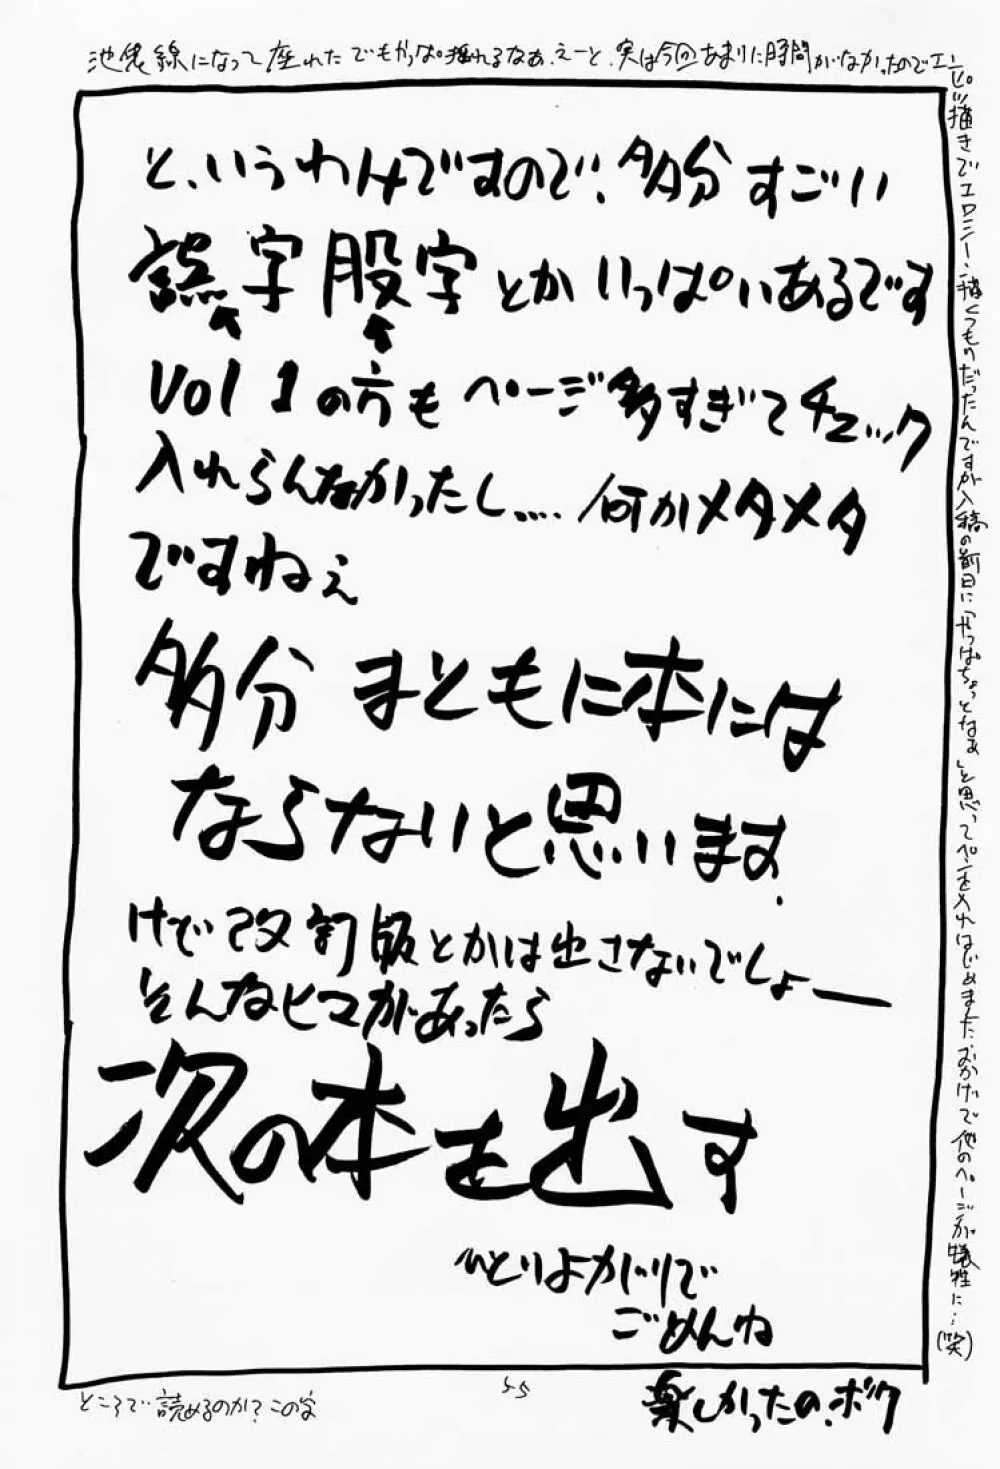 池袋線になって座れた でもやっぱ揺れるなぁ、えーと、実は今回あまりに時間がなかったのでエン
ピツ描きでエロシーン描くつもりだったんですが入稿の前日に「やっぱちょっとなぁ」と思ってペンを入れはじめました おかげで他のページが犠牲に…(笑)
と、いうわけですので、多分すごい
誤字股字とかいっぱいあるです
Vol 1の方もページ多すぎてチェック
入れらんなかったし.... 何かメタメタ
ですねぇ
多分 まともに本には
ならないと思います.
けど改訂版とかは出さないでしょー
そんなヒマがあったら
次の本を出す
ひとりよがりで
ごめんね
楽しかったの。ボク
ところで読めるのか？この字
55